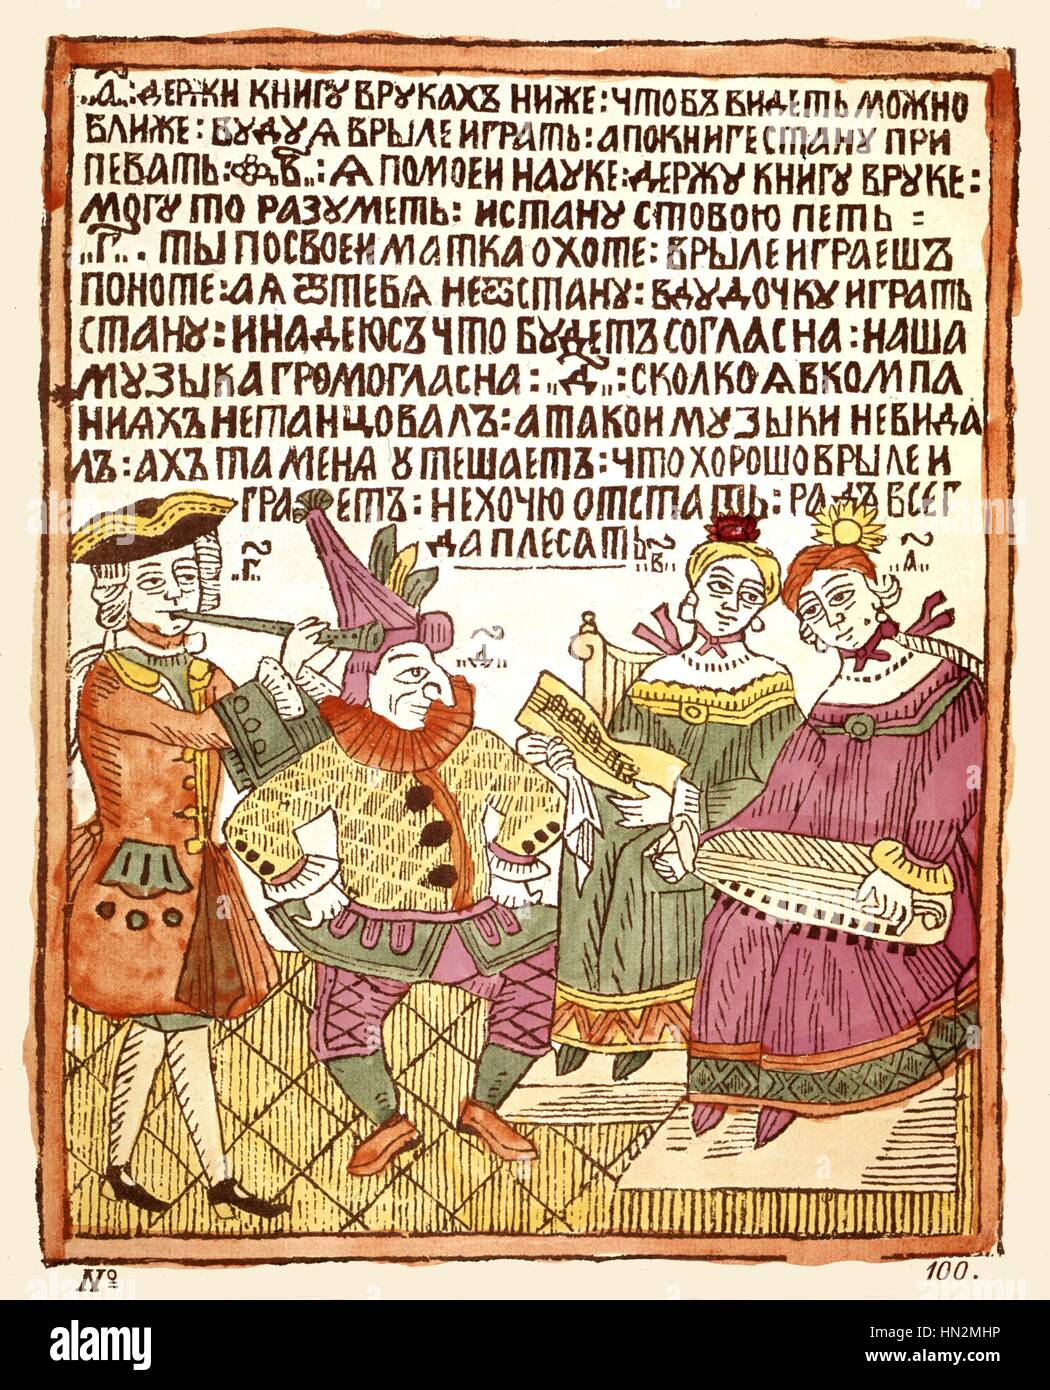 „А҃„: ДЕРЖИ КНИГУ ВРУКАХЪ НИЖЕ: ЧТОБЪ ВИДЕТЬ МОЖНО
БЛИЖЕ: БУДУ Ѧ ВРЫЛЕ ИГРАТЬ: АПОКНИГЕ СТАНУ ПРИ
ПЕВАТЬ: „В҃„: Ѧ ПОМОЕИ НАУКЕ: ДЕРЖУ КНИГУ ВРУКЕ:
МОГУ ТО РАЗУМЕТЬ: ИСТАНУ СТОБОЮ ПЕТЬ =
„Г҃„. ТЫ ПОСВОЕИ МАТКА ОХОТЕ: ВРЫЛЕ ИГРАЕШЪ
ПОНОТЕ: АѦ ѾТЕБѦ НЕѾСТАНУ: ВДУДОЧКУ ИГРАТЬ
СТАНУ: ИНАДЕЮСЪ ЧТО БУДЕТЪ СОГЛАСНА: НАША
МУЗЫКА ГРОМОГЛАСНА: „Д҃„: СКОЛКО Ѧ ВКОМПА
НИѦХЪ НЕТАНЦОВАЛЪ: АТАКОИ МУЗЫКИ НЕВИДА
ЛЪ: АХЪ ТА МЕНѦ УТЕШАЕТЪ: ЧТО ХОРОШО ВРЫЛЕ И
ГРАЕТЪ: НЕХОЧЮ ОТСТАТЬ: РАДЪ ВСЕГ
ДА ПЛЕСАТЬ
„Г҃„
„Д҃„
„В҃„
„А҃„
Nº
100.
alamy
Image ID: HN2MHP
www.alamy.com